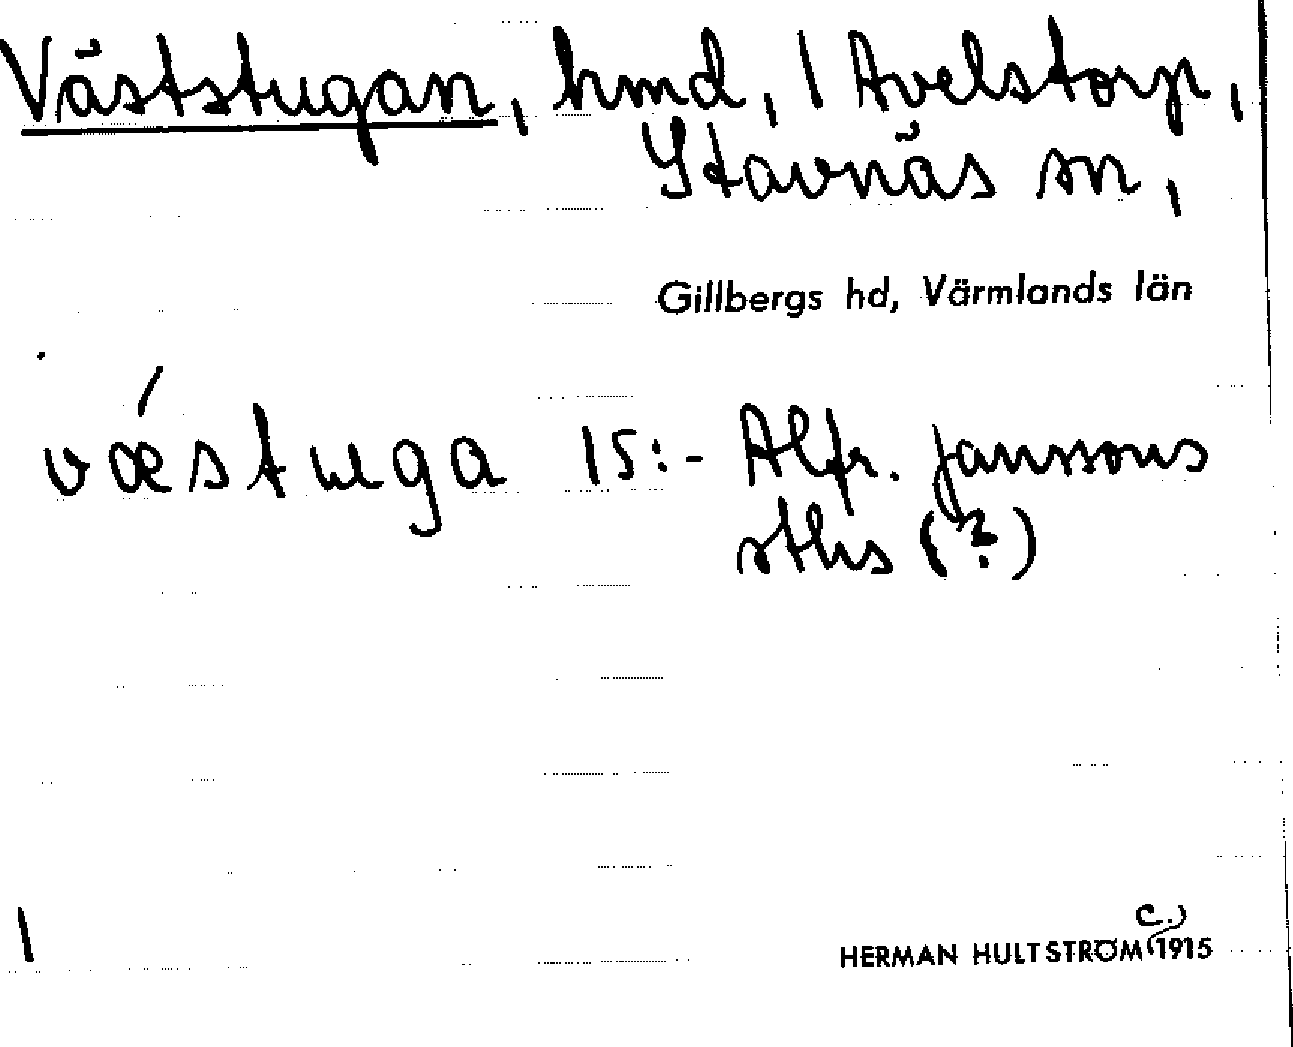 Väststugan, hmd, 1 Avelstorp,
Stavnäs sn,
Gillbergs hd, Värmlands län
væ´stuga 15:- Alfr. Janssons
sths (?)
1
HERMAN HULTSTRÖM (c.) 1915